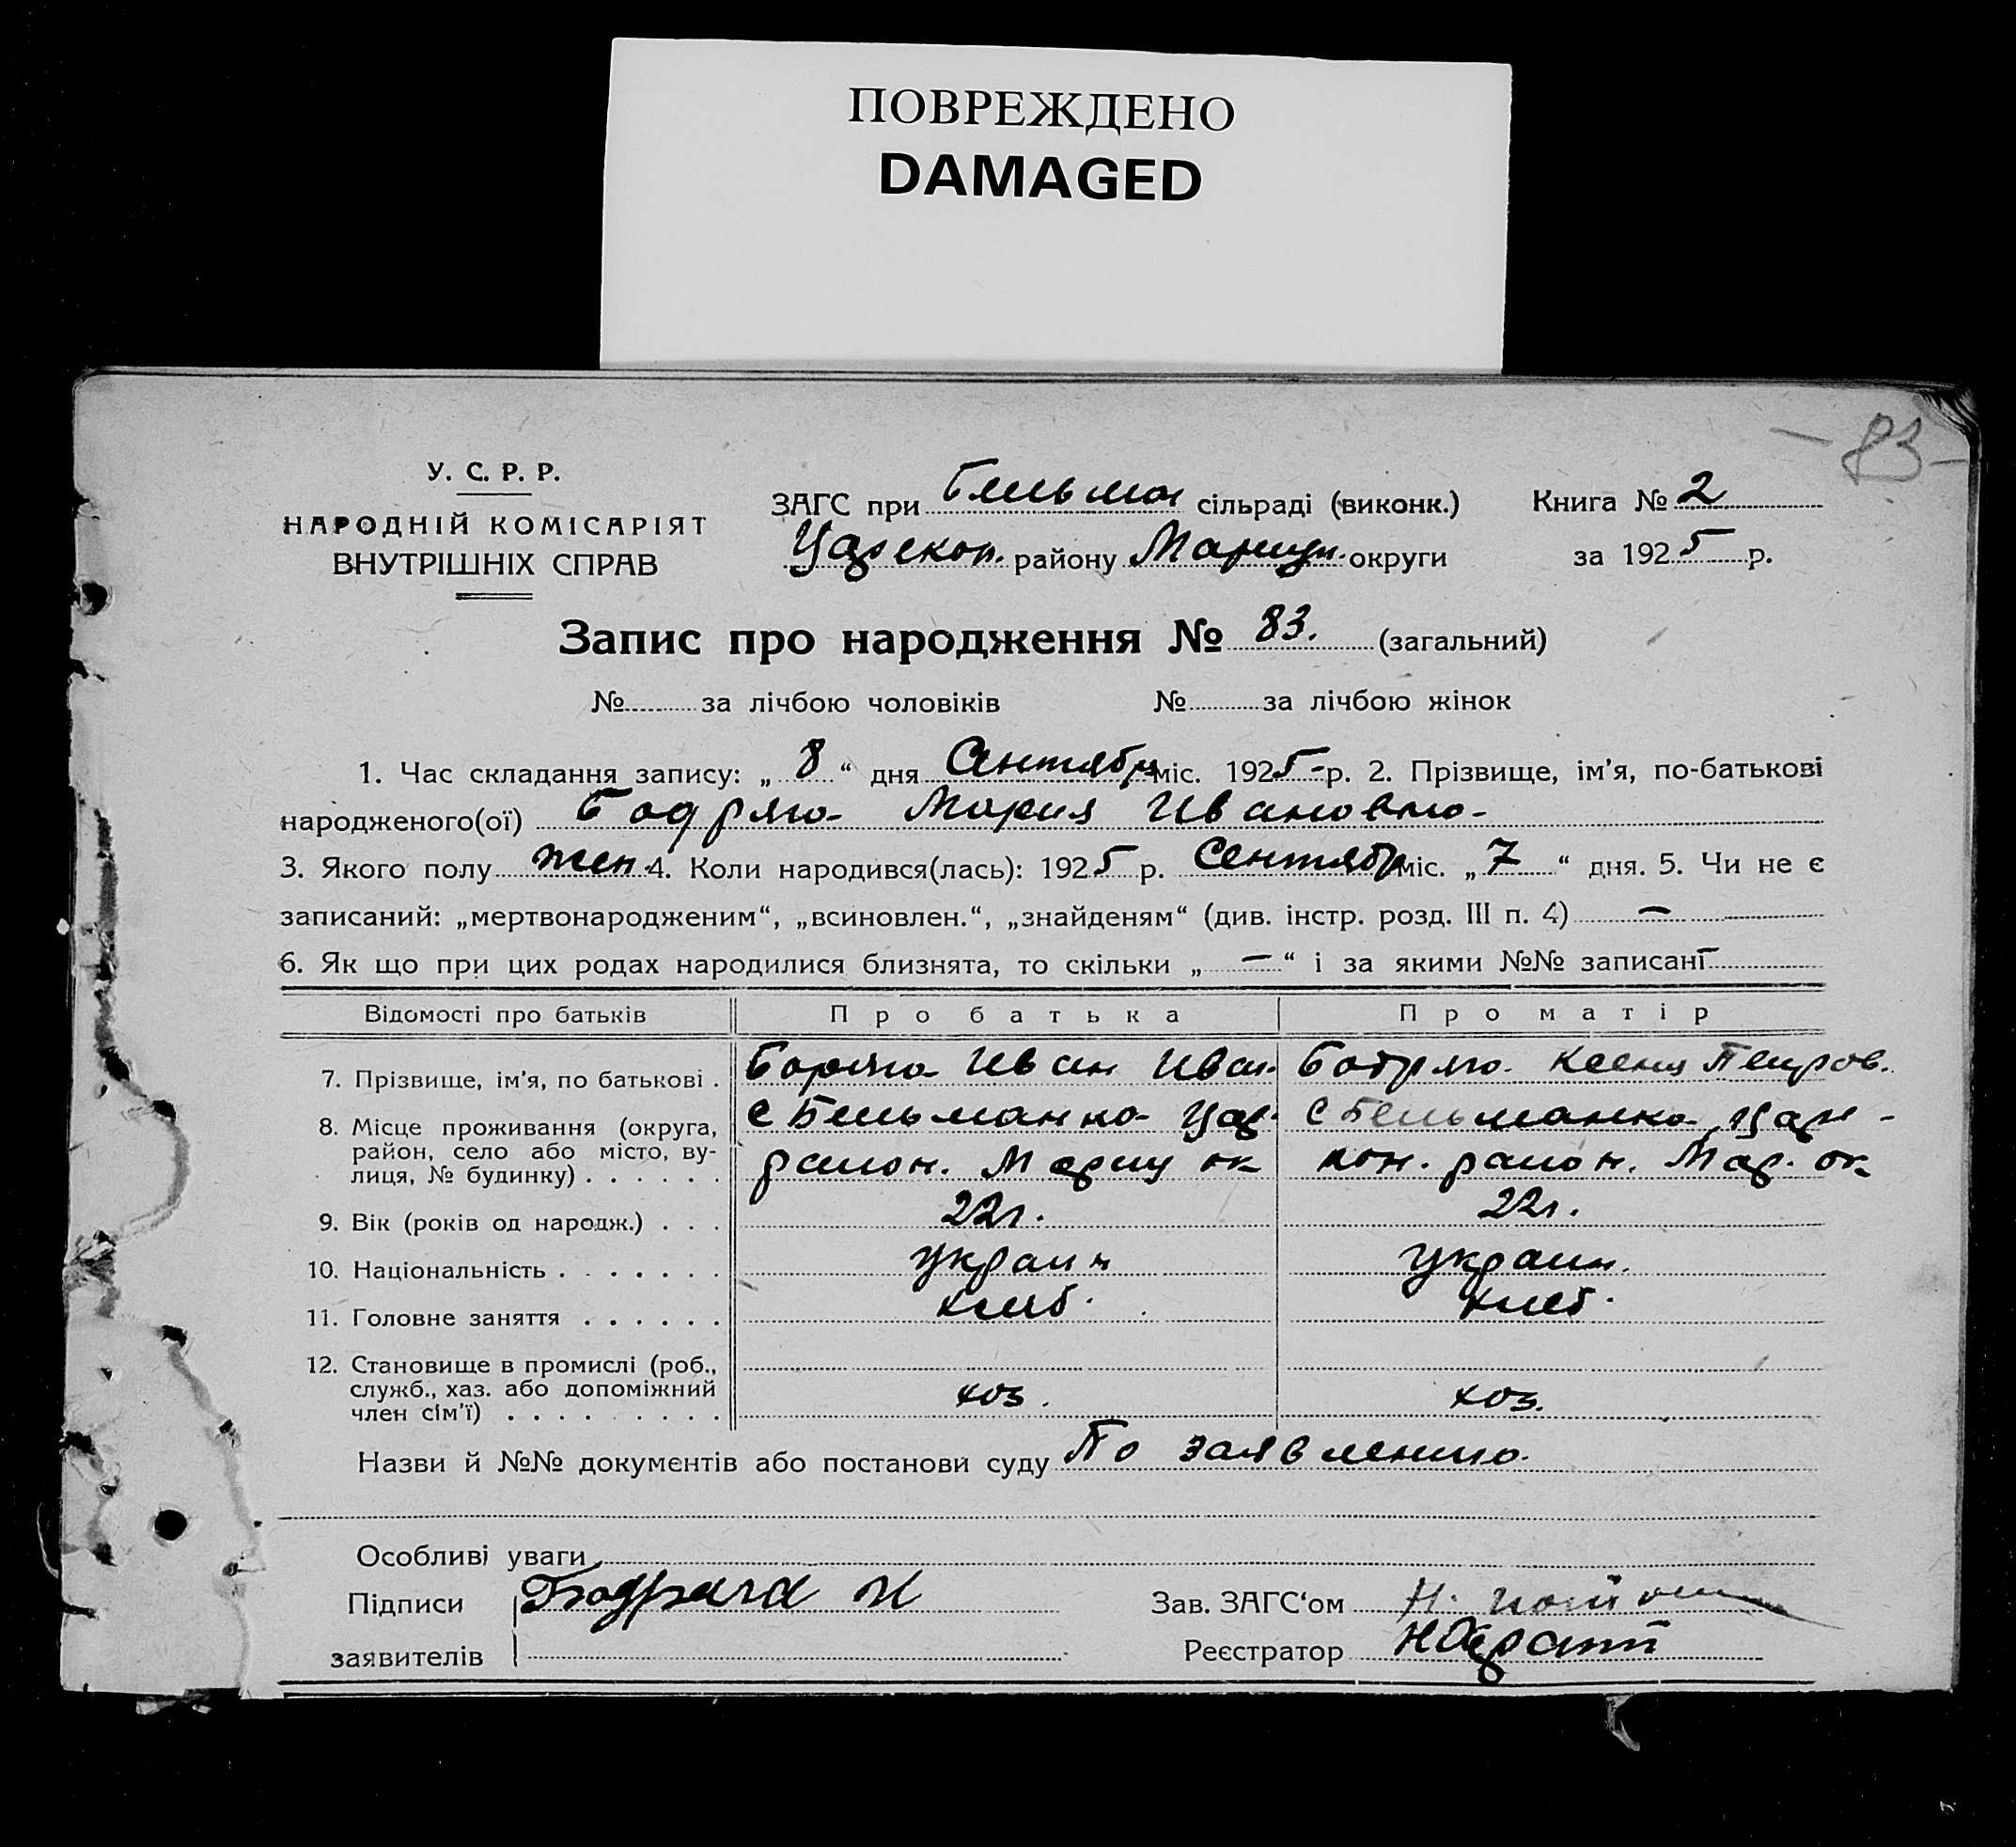 ПОВРЕЖДЕНО
DAMAGED
- 83 -
У. С. Р. Р.
НАРОДНІЙ КОМІСАРІЯТ
ВНУТРІШНІХ СПРАВ
ЗАГС при Бельман сільраді (виконк.) Книга № 2
Царекон. району Мариуп. округи за 1925 р.
Запис про народження № 83. (загальний)
№ за лічбою чоловіків № за лічбою жінок
1. Час складання запису: „ 8 “ дня Сентябр міс. 1925 р. 2. Прізвище, ім’я, по-батькові
народженого(ої) Бодряга Мария Ивановна
3. Якого полу жен. 4. Коли народився(лась): 1925 р. Сентябр міс. „ 7 “ дня. 5. Чи не є
записаний: „мертвонародженим“, „всиновлен.“, „знайденям“ (див. інстр. розд. III п. 4) —
6. Як що при цих родах народилися близнята, то скільки „ — “ і за якими №№ записані
Відомості про батьків Про батька Про матір
7. Прізвище, ім’я, по батькові . Бодряга Иван Иван. Бодряга Ксения Петров.
8. Місце проживання (округа, с Бельманка Цар. с Бельманка, Царе-
район, село або місто, ву-
лиця, № будинку) . . . . . . район. Мариу ок кон. район. Мар. ок
9. Вік (років од народж.) . . . 22 г. 22 г.
10. Національність . . . . . . . украин украин.
11. Головне заняття . . . . . . хлеб. хлеб.
12. Становище в промислі (роб.,
служб., хаз. або допоміжний
член сім’ї) . . . . . . . . . хоз. хоз.
Назви й №№ документів або постанови суду По заявлению.
Особливі уваги
Підписи Бодряга И Зав. ЗАГС‘ом Н.
заявителів Реєстратор